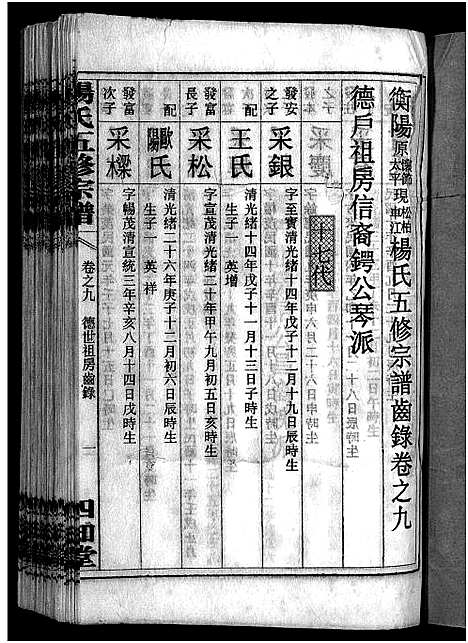 衡陽原太平現車江松柏楊氏五修宗譜齒錄卷之九
德戶祖房信裔鍔公琴派
十七代
發安之子 采銀 字至實清光緒十四年戊子十二月十九日辰時生
配 王氏 清光緒十四年戊子十一月十三日子時生
生子一 英增
發富長子 采松 字宣茂清光緒二十年甲午九月初五日亥時生
配 歐陽氏 清光緒二十六年庚子十二月初六日辰時生
生子一 英祥
發富次子 采樑 字暢茂清宣統三年辛亥八月十四日戌時生
楊氏五修宗譜
卷之九 德世祖房齒錄 一
四知堂